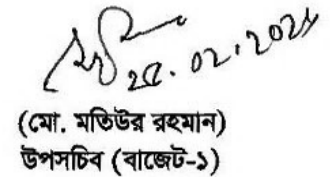 02.202
(মো. মতিউর রহমান)
উপসচিব (বাজেট-১)